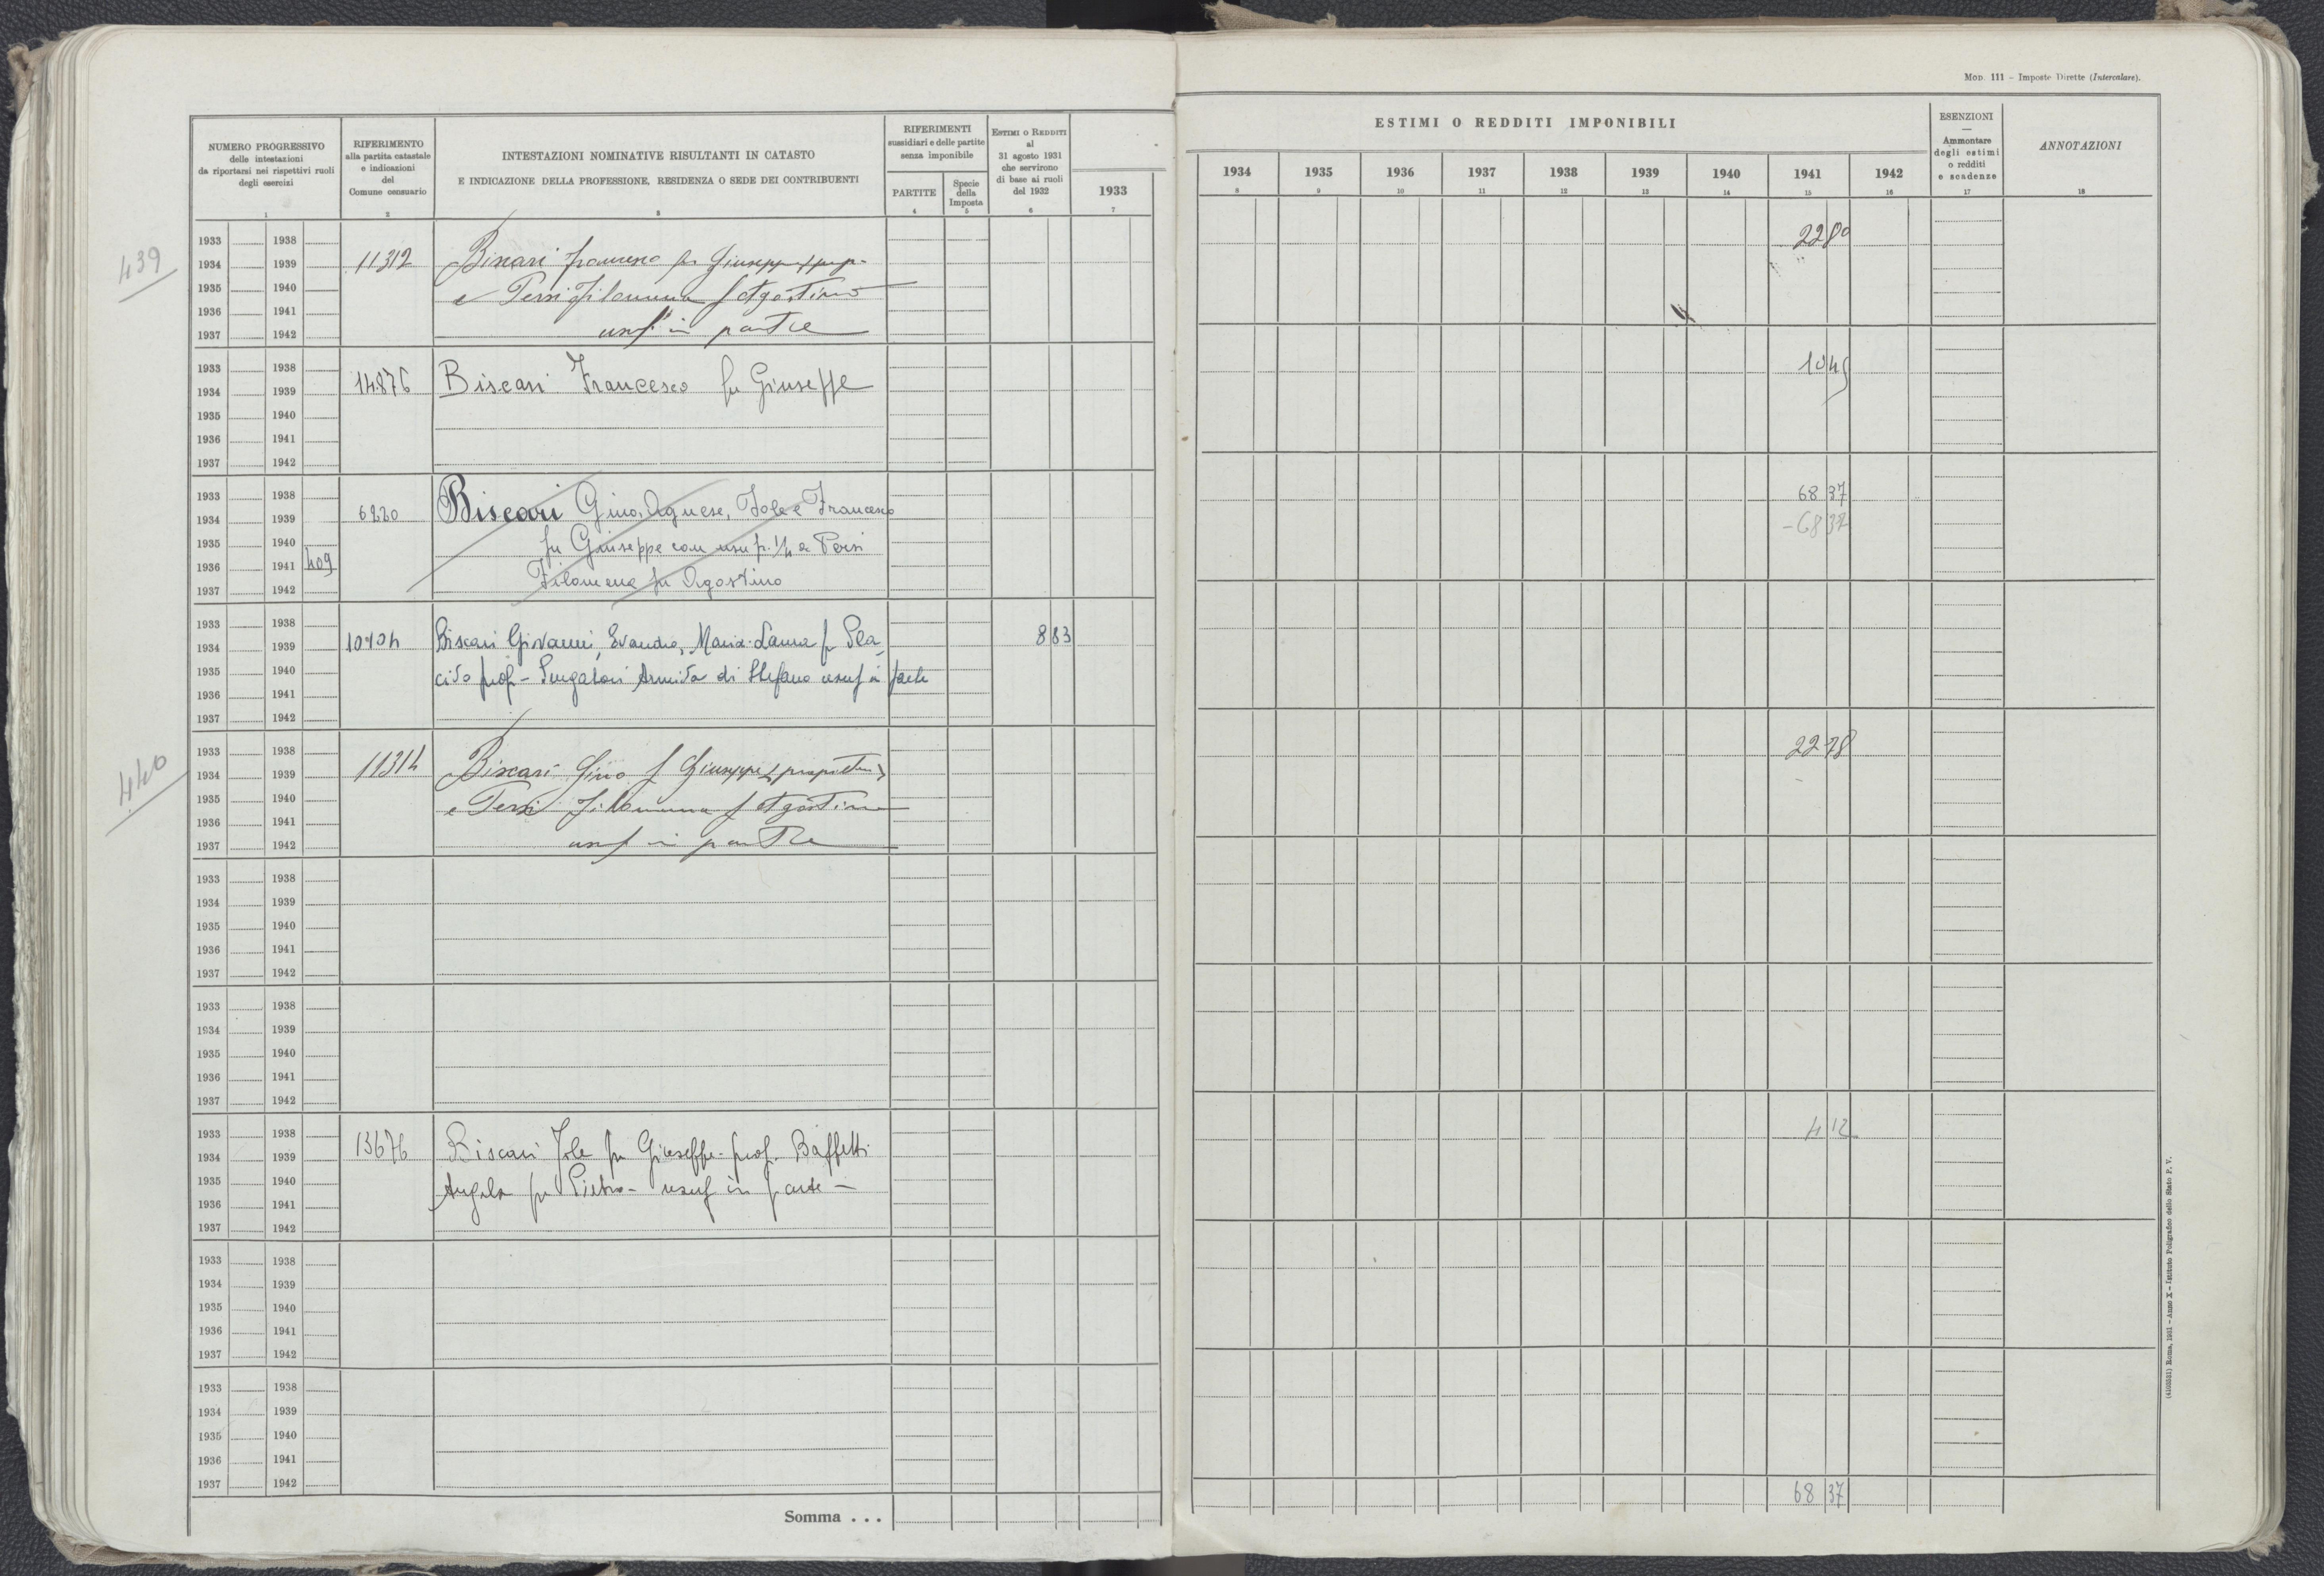 MOD. 111 - Imposte Dirette (Intercalare).
NUMERO PROGRESSIVO
delle intestazioni
da riportarsi nei rispettivi ruoli
degli esercizi
1
RIFERIMENTO
alla partita catastale
e indicazioni
del
Comune censuario
2
INTESTAZIONI NOMINATIVE RISULTANTI IN CATASTO
E INDICAZIONE DELLA PROFESSIONE, RESIDENZA O SEDE DEI CONTRIBUENTI
3
RIFERIMENTI
sussidiari e delle partite
senza imponibile
PARTITE
4
Specie
della
Imposta
5
ESTIMI O REDDITI
al
31 agosto 1931
che servirono
di base ai ruoli
del 1932
6
1933
7
ESTIMI O REDDITI IMPONIBILI
1934 1935 1936 1937 1938 1939 1940 1941 1942
8 9 10 11 12 13 14 15 16
ESENZIONI
—
Ammontare
degli estimi
o redditi
e scadenze
17
ANNOTAZIONI
18
439
1933 1938
1934 1939
1935 1940
1936 1941
1937 1942
11312
Biscari Francesco fu Giuseppe prop.
e Persi Filomena f Agostino
usuf in parte
2280
1933 1938
1934 1939
1935 1940
1936 1941
1937 1942
14876
Biscari Francesco fu Giuseppe
1045
1933 1938
1934 1939
1935 1940
1936 1941 409
1937 1942
6220
Biscari Gino, Agnese, Iole e Francesco
fu Giuseppe con usuf. 1/4 a Persi
Filomena fu Agostino
68 37
-68 37
1933 1938
1934 1939
1935 1940
1936 1941
1937 1942
Biscari Giovanni, Evandro, Maria-Laura f Pla
cido prop - Armida di Stefano usuf in parte
8 83
440
1933 1938
1934 1939
1935 1940
1936 1941
1937 1942
11314
Biscari Gino f Giuseppe
e Persi Filomena f Agostino
usuf in parte
22 78
1933 1938
1934 1939
1935 1940
1936 1941
1937 1942
1933 1938
1934 1939
1935 1940
1936 1941
1937 1942
1933 1938
1934 1939
1935 1940
1936 1941
1937 1942
13676
Biscari Iole fu Giuseppe - prop. Baffetti
Angela fu Pietro - usuf in parte -
4 12
1933 1938
1934 1939
1935 1940
1936 1941
1937 1942
1933 1938
1934 1939
1935 1940
1936 1941
1937 1942
Somma . . .
68 37
(4103531) Roma, 1931 - Anno X - Istituto Poligrafico dello Stato P. V.